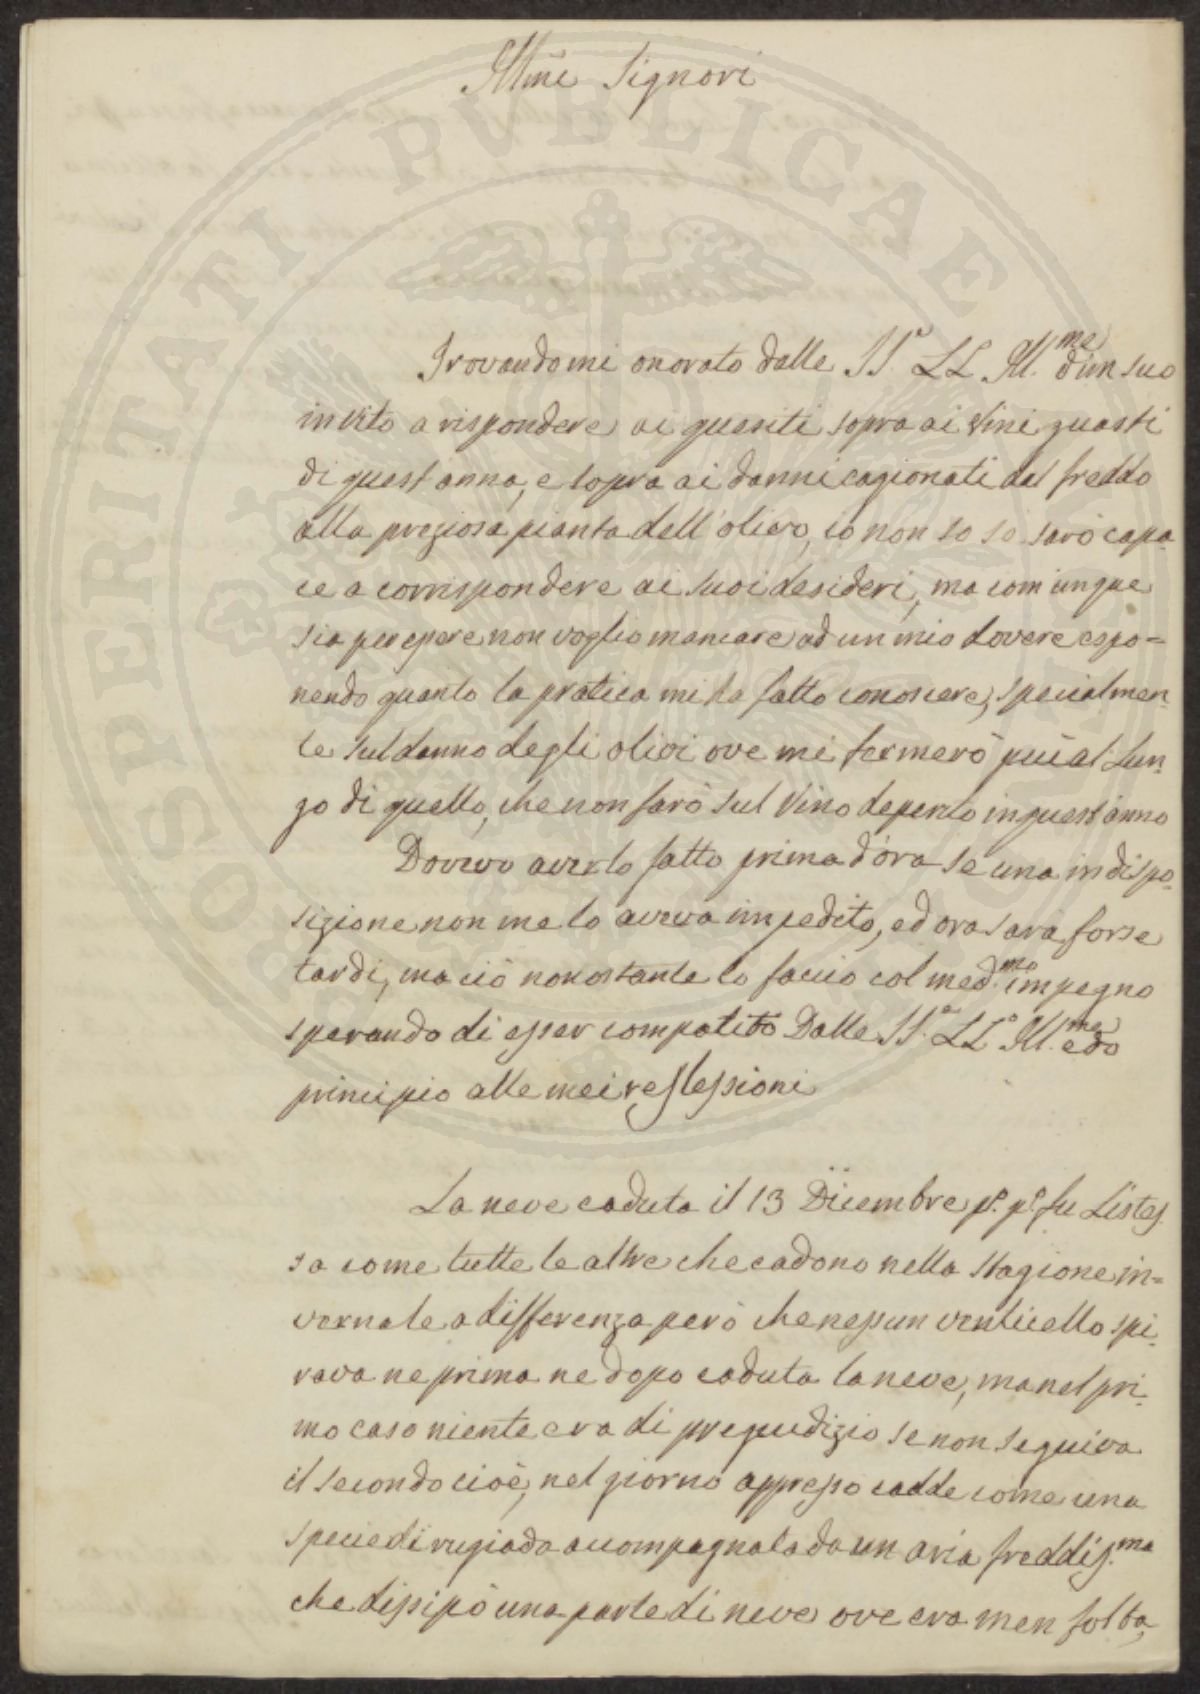 Illmi Signori
Trovandomi onorato dalle SS.e LL. Ill.me d'un suo
invito a rispondere ai quesiti sopra ai Vini guasti
di quest anno, e sopra ai danni cagionati dal freddo
alla preziosa pianta dell'olivo, io non so se sarò capa-
ce a corrispondere ai suoi desideri, ma comunque
sia per essere non voglio mancare ad un mio dovere espo=
nendo quanto la pratica mi ha fatto conoscere, specialmen-
te sul danno degli olivi ove mi fermerò più al lun-
go di quello, che non farò sul Vino deperito in quest'anno
Dovevo averlo fatto prima d'ora se una indispo-
sizione non me lo aveva impedito, ed ora sarà forse
tardi, ma ciò nonostante lo faccio col med.mo impegno
sperando di esser compatito Dalle SS.e LL.e Ill.me e do
principio alle mei reflessioni
La neve caduta il 13 Dicembre p.o p.o fu l'istes-
sa come tutte le altre che cadono nella stagione in=
vernale a differenza però che nessun venticello spi-
rava ne prima ne dopo caduta la neve, ma nel pri-
mo caso niente era di pregiudizio se non seguiva
il secondo cioè, nel giorno appresso cadde come una
specie di rugiada accompagnata da un aria freddis.ma
che dissipò una parte di neve ove era men folta,
PROSPERITATI PUBLICAE